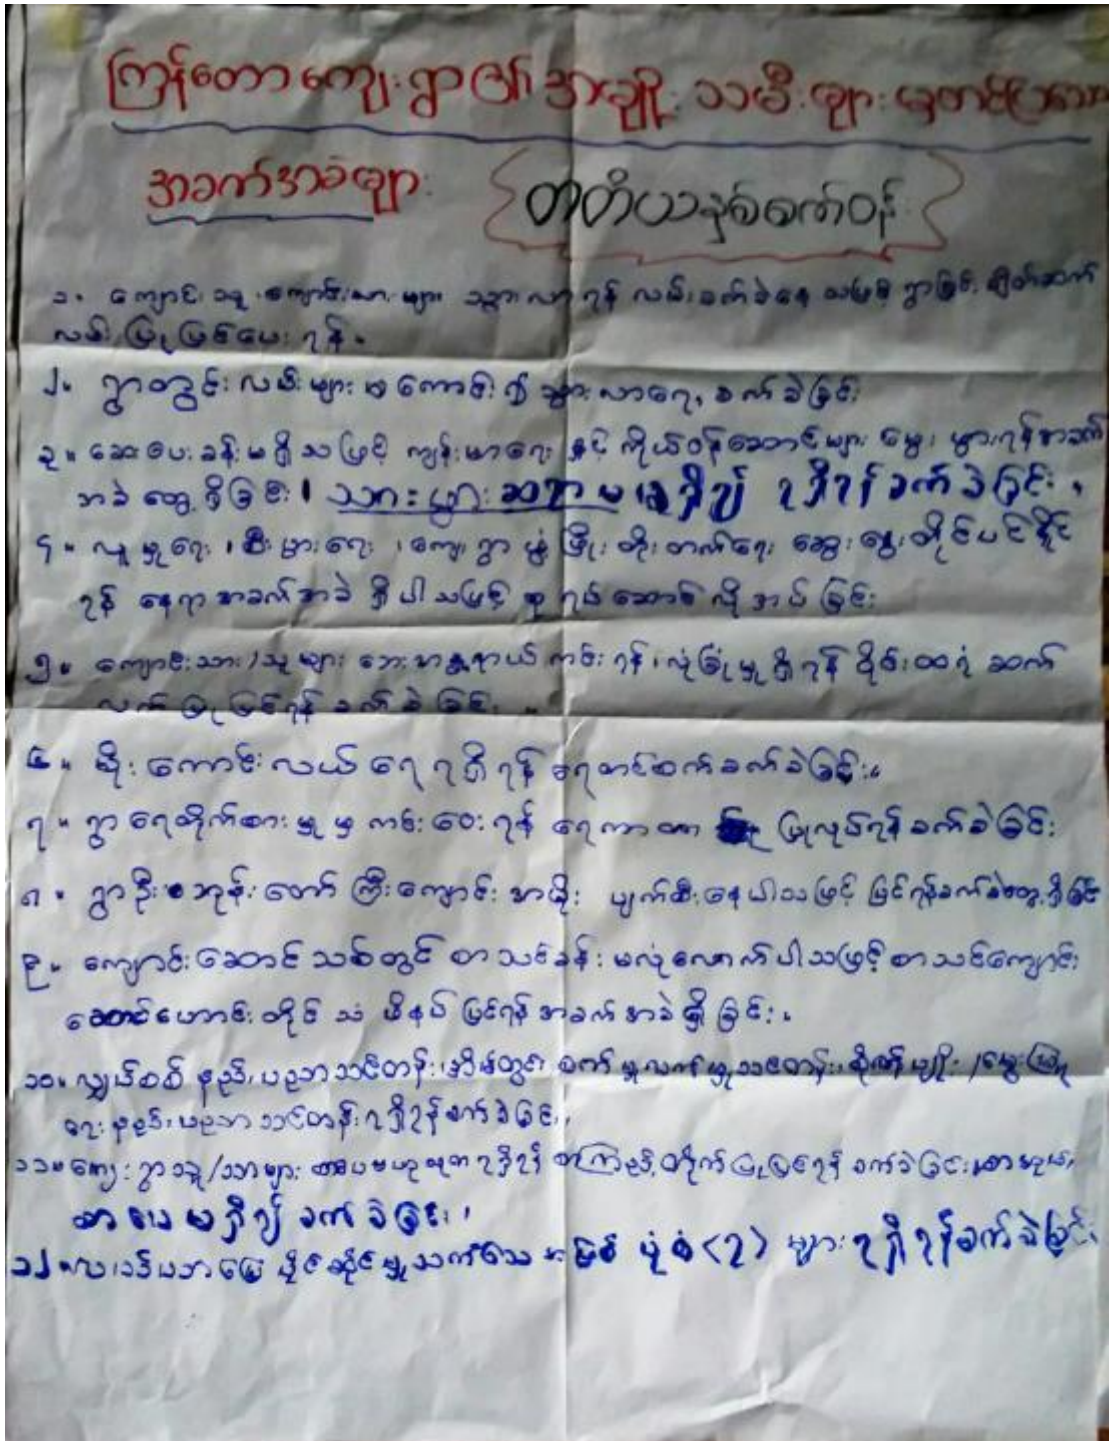 ကြံန်တော ကျေးရွာ၏ အမျိုးသမီးများ မှတင်ပြသော
အခက်အခဲများ တတိယနှစ်စက်ဝန်း
၁။ ကျောင်းသူ၊ ကျောင်းသားများ သွားလာရန် လမ်းခက်ခဲနေသဖြင့် ရွာခြင်းချိတ်ဆက်
လမ်းပြုပြင်ပေးရန်။
၂။ ရွာတွင်းလမ်းများ မကောင်း၍ သွားလာရေး ခက်ခဲခြင်း
၃။ ဆေးပေးခန်းမရှိသဖြင့် ကျန်းမာရေးနှင့် ကိုယ်ဝန်ဆောင်များ မွေးဖွားရန်အခက်
အခဲတွေ့ရှိခြင်း၊ သားဖွားဆရာမ မရှိ၍ ရရှိရန်ခက်ခဲခြင်း။
၄။ လူမှုရေး၊ စီးပွားရေး၊ ကျေးရွာဖွံ့ဖြိုးတိုးတက်ရေး ဆွေးနွေးတိုင်ပင်နိုင်
ရန် နေရာအခက်အခဲ ရှိပါသဖြင့် စုရပ်ဆောင် လိုအပ်ခြင်း
၅။ ကျောင်းသား/သူများ ဘေးအန္တရာယ် ကင်းရန်၊ လုံခြုံမှုရှိရန် ဝိုင်းထရံ ဆက်
လက်ပြုပြင်ရန် ခက်ခဲခြင်း။
၆။ မိုးကောင်းလယ်ရေရရှိရန် ရေတင်စက်ခက်ခဲခြင်း။
၇။ ရွာရေတိုက်စားမှုမှ ကင်းဝေးရန် ရေကာတာ ပြုလုပ်ရန်ခက်ခဲခြင်း
၈။ ရွာဦးဘုန်းတော်ကြီးကျောင်း အမိုး ပျက်စီးနေပါသဖြင့် ပြင်ရန်ခက်ခဲတွေ့ရှိခြင်း
၉။ ကျောင်းဆောင်သစ်တွင် စာသင်ခန်း မလုံလောက်ပါသဖြင့် စာသင်ကျောင်း
ဆောင်ဟောင်းတိုင် ပြင်ရန် အခက်အခဲရှိခြင်း။
၁၀။ လျှပ်စစ်နည်းပညာသင်တန်း၊ အိမ်တွင်း စက်မှုလက်မှုသင်တန်း၊ စိုက်ပျိုး/မွေးမြူ
ရေးနည်းပညာ သင်တန်းရရှိရန်ခက်ခဲခြင်း။
၁၁။ ကျေးရွာသူ/သားများ ဗဟုသုတရရှိရန် စာကြည့်တိုက်ပြုပြင်ရန် ခက်ခဲခြင်း၊ စာအုပ်
စာပေ မရှိ၍ ခက်ခဲခြင်း။
၁၂။ လယ်ယာမြေပိုင်ဆိုင်မှုသက်သေ ပုံစံ (၇) များရရှိရန်ခက်ခဲခြင်း